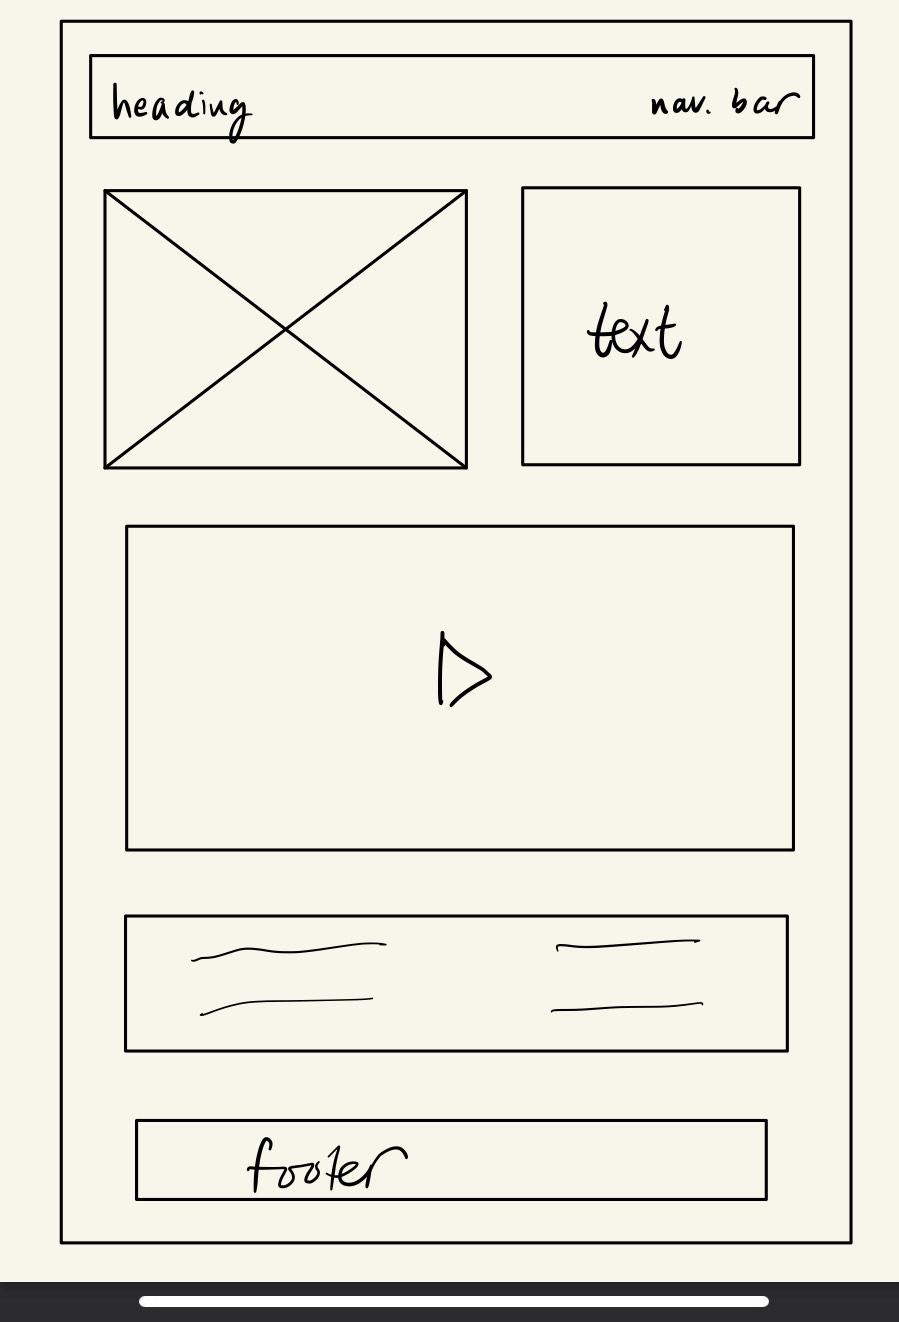 heading
nav. bar
text
footer